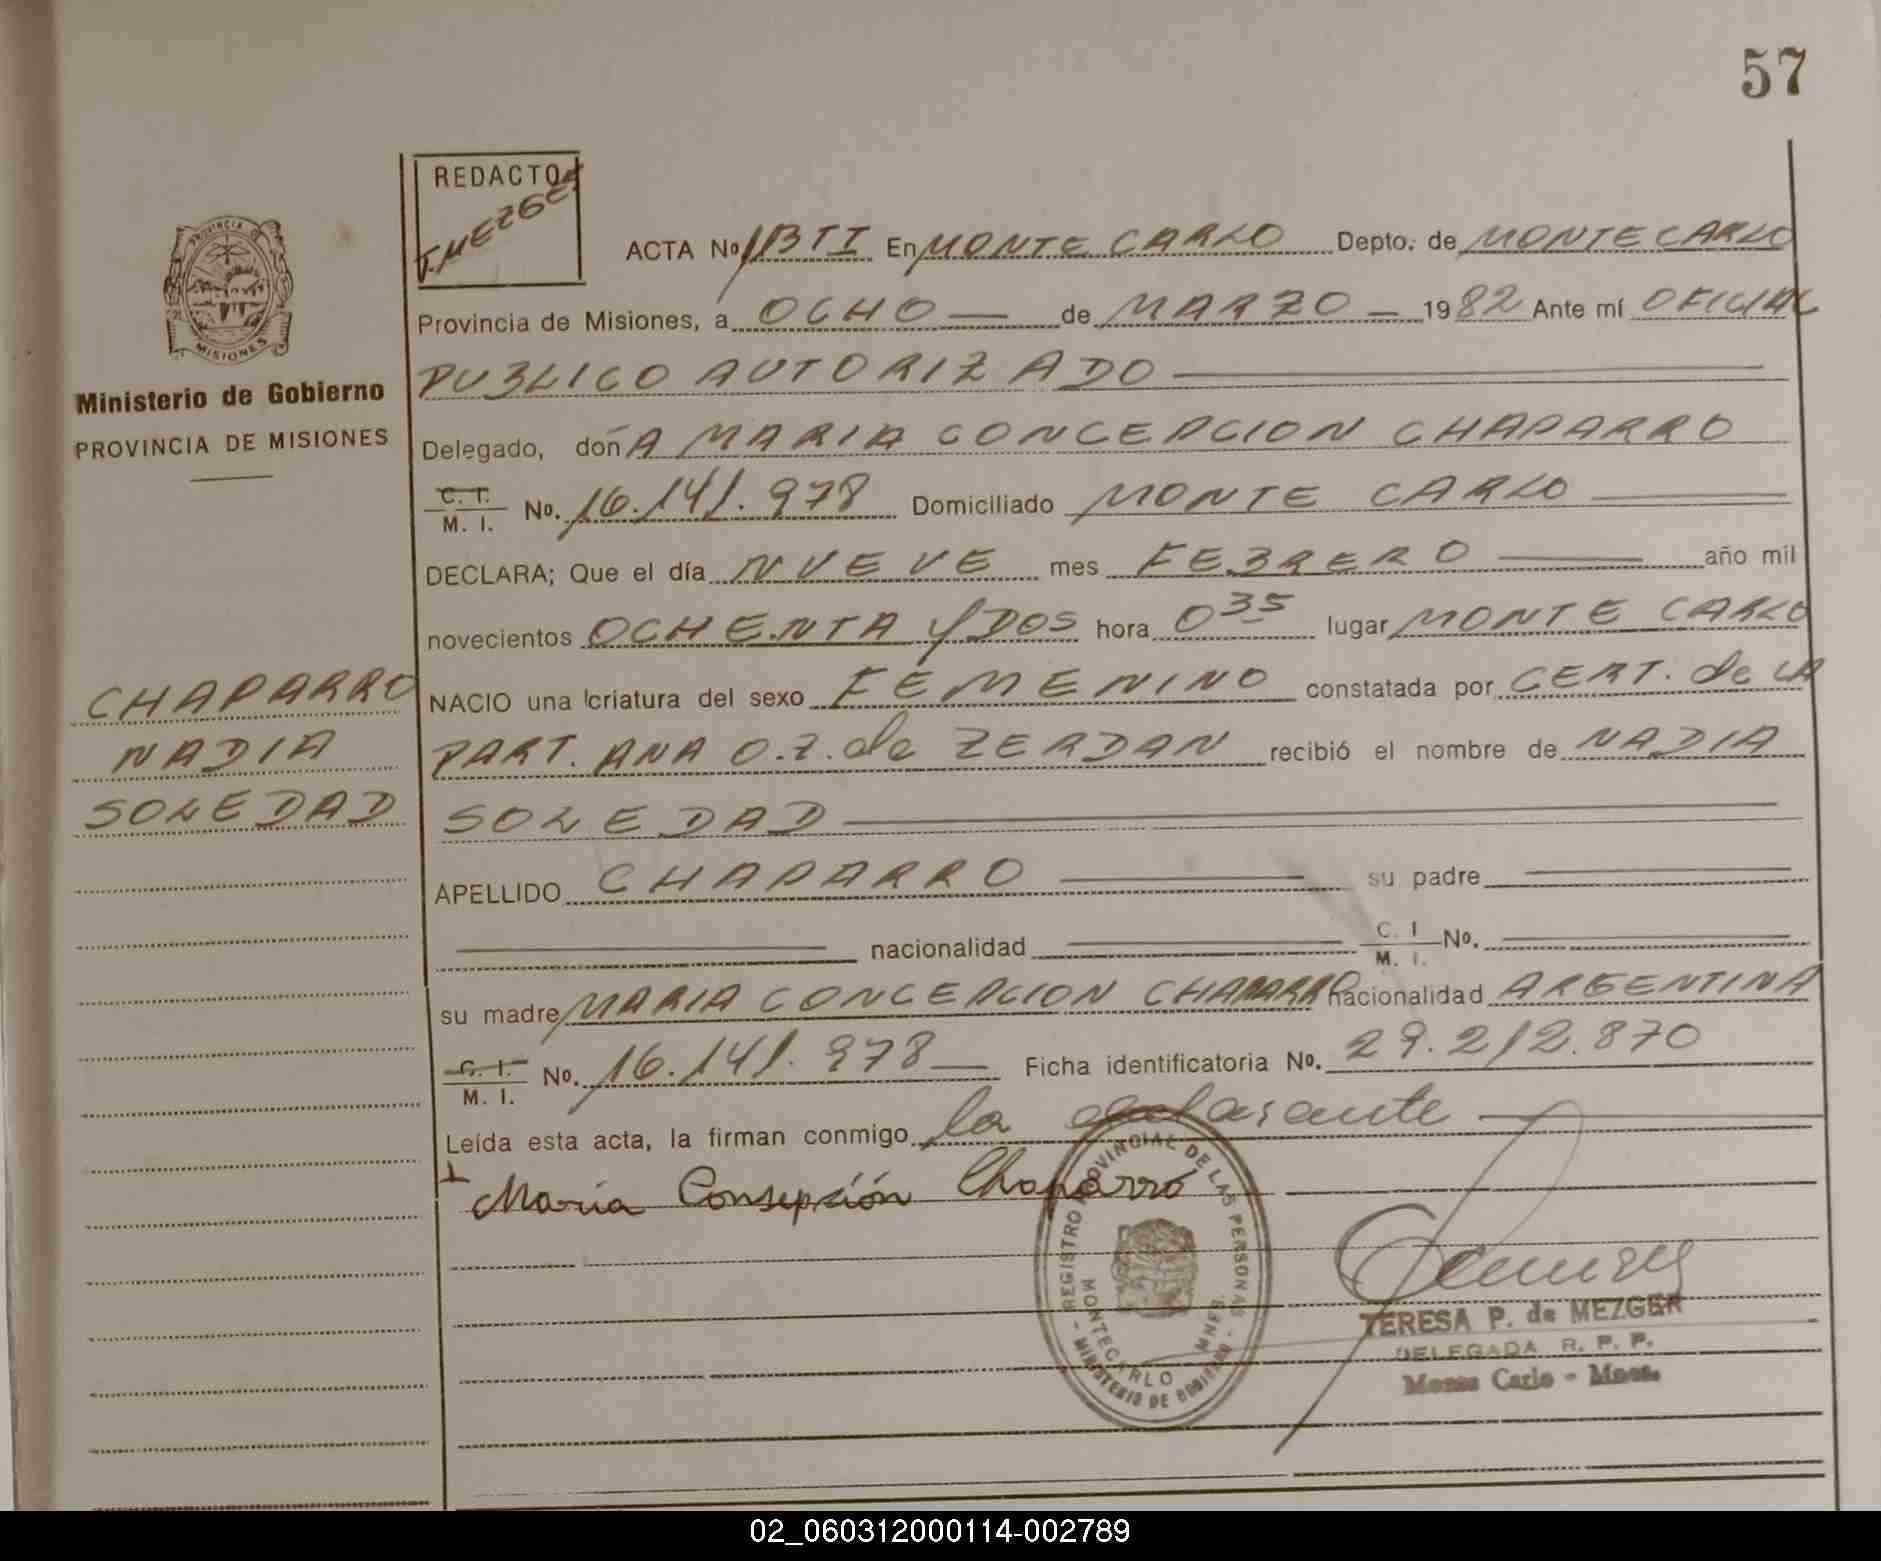 57
REDACTOR
T. MEZGER
ACTA No 113 TI En MONTE CARLO Depto. de MONTECARLO
Provincia de Misiones, a OCHO — de MARZO — 1982 Ante mí OFICIAL
PUBLICO AUTORIZADO
Delegado, doñA MARIA CONCEPCION CHAPARRO
C. I.
M. I. No. 16.141.978 Domiciliado MONTE CARLO
DECLARA; Que el día NUEVE mes FEBRERO año mil
novecientos OCHENTA y DOS hora 0 35 lugar MONTE CARLO
NACIO una criatura del sexo FEMENINO constatada por CERT. de LA
PART. ANA O.Z. de ZERDAN recibió el nombre de NADIA
SOLEDAD
APELLIDO CHAPARRO su padre
nacionalidad C. I. M. I. No.
su madre MARIA CONCEPCION CHAPARRO nacionalidad ARGENTINA
C. I.
M. I. No. 16.141.978 Ficha identificatoria No. 29.212.870
Leída esta acta, la firman conmigo la declarante
María Consepsión Chaparró
PROVINCIA DE
MISIONES
Ministerio de Gobierno
PROVINCIA DE MISIONES
CHAPARRO
NADIA
SOLEDAD
REGISTRO PROVINCIAL DE LAS PERSONAS
MONTECARLO MNES.
- MINISTERIO DE GOBIERNO -
TERESA P. de MEZGER
DELEGADA R. P. P.
Monte Carlo - Mnes.
02_060312000114-002789